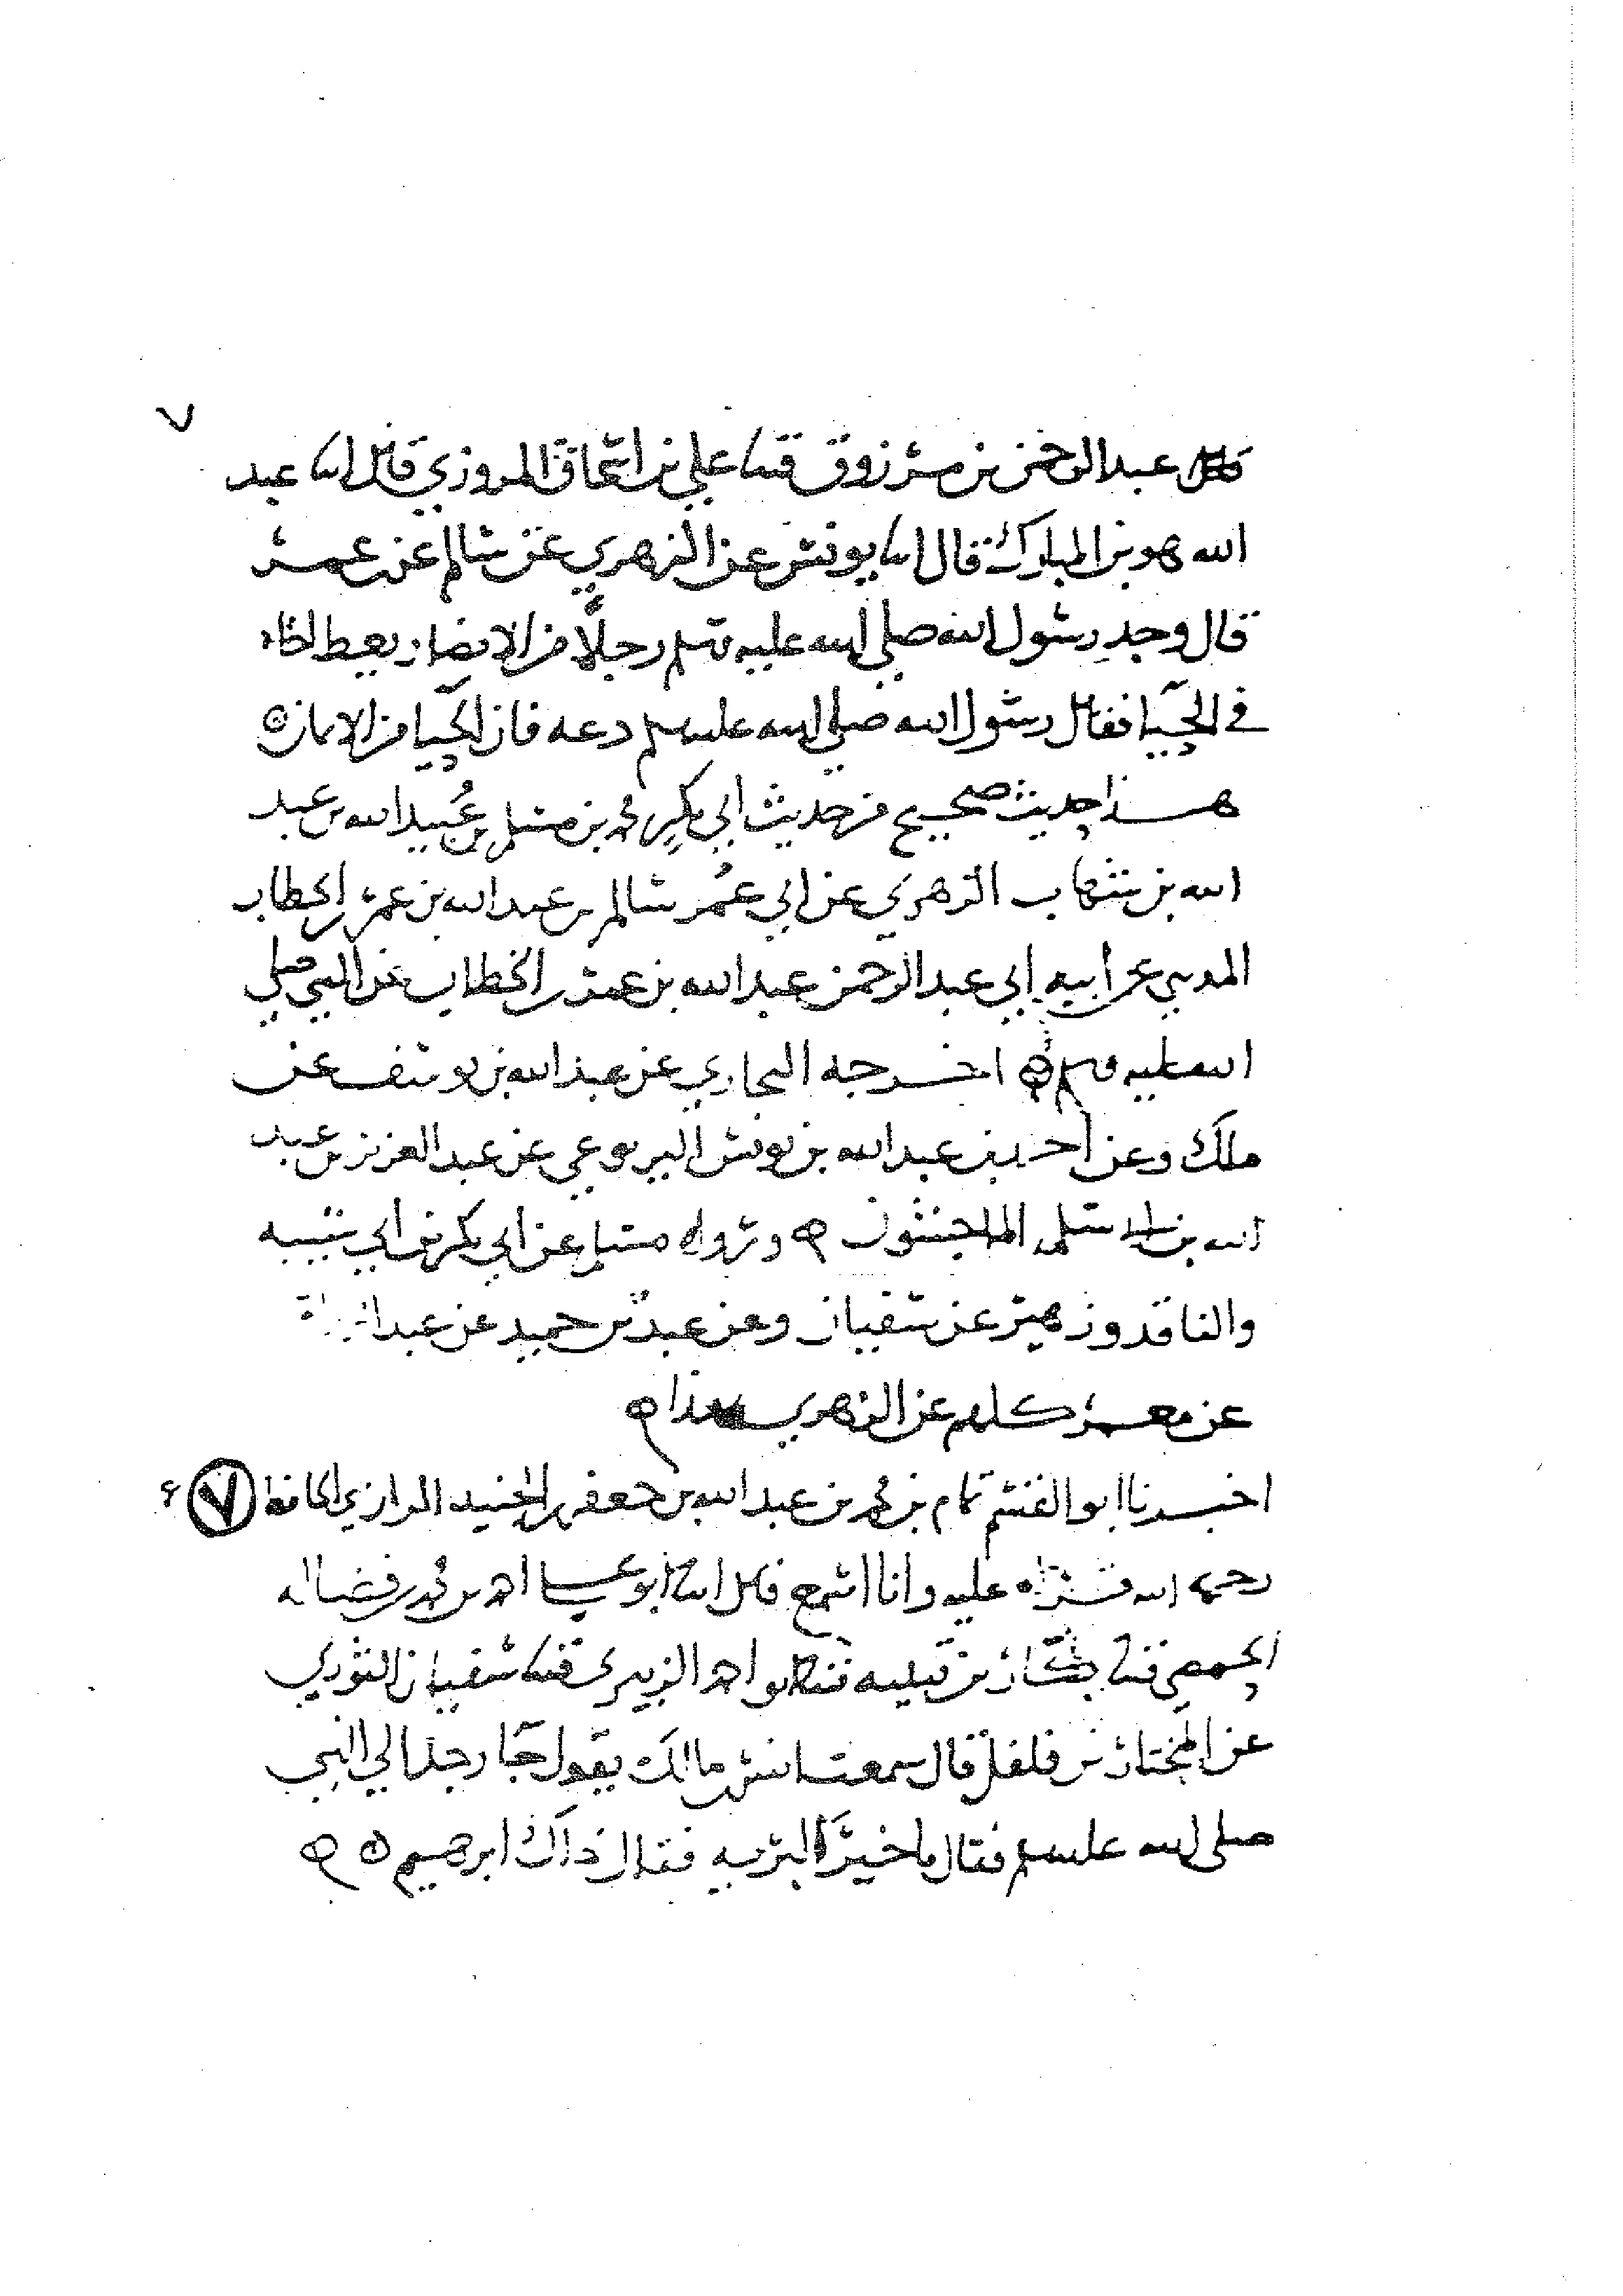 ٧
قال عبد الرحمن بن مرزوق قثنا علي بن اسحاق المروزي قال انا عبد
الله هو بن المبارك قال انا يونس عن الزهري عن سالم عن عمر
قال وجد رسول الله صلى الله عليه وسلم رجلًا من الانصار يعظ اخاه
في الحيا فقال رسول الله صلى الله عليه وسلم دعه فان الحيا من الايمان
هذا حديث صحيح من حديث ابي بكر محمد بن مسلم بن عُبيد الله بن عبد
الله بن شهاب الزهري عن ابي عُمر سالم بن عبد الله بن عمر بن الخطاب
المدني عن ابيه ابي عبد الرحمن عبد الله بن عمر بن الخطاب عن النبي صلى
الله عليه وسلم اخرجه البخاري عن عبد الله بن يوسف عن
ملك وعن احمد بن عبد الله بن يونس اليربوعي عن عبد العزيز بن عبد
الله بن ابي سلمه الماجشون ورواه مسلم عن ابي بكر بن ابي شيبه
والناقد وزهير عن سفيان وعن عبد بن حميد عن عبد الرزاق
عن معمر كلهم عن الزهري بهذا
اخبرنا ابو القسم تمام بن محمد بن عبد الله بن جعفر بن الجنيد الرازي الحافظ ٧
رحمه الله قراه عليه وانا اسمع قال انا ابو علي احمد بن محمد بن فضاله
الحمصي قثنا بكار بن قتيبه قثنا ابو احمد الزبيري قثنا سفيان الثوري
عن المختار بن فلفل قال سمعت انس بن مالك يقول جا رجل الي النبي
صلى الله عليه وسلم فقال يا خير البريه فقال ذاك ابرهيم